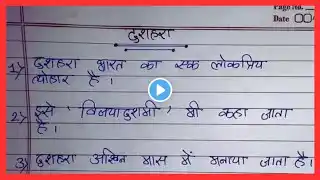 Page No.
Date
दुशहरा
1) दुशहरा भारत का एक लोकप्रिय
त्योहार है।
2) इसे 'विजयादशमी' भी कहा जाता
है।
3) दुशहरा अश्विन मास में मनाया जाता है।